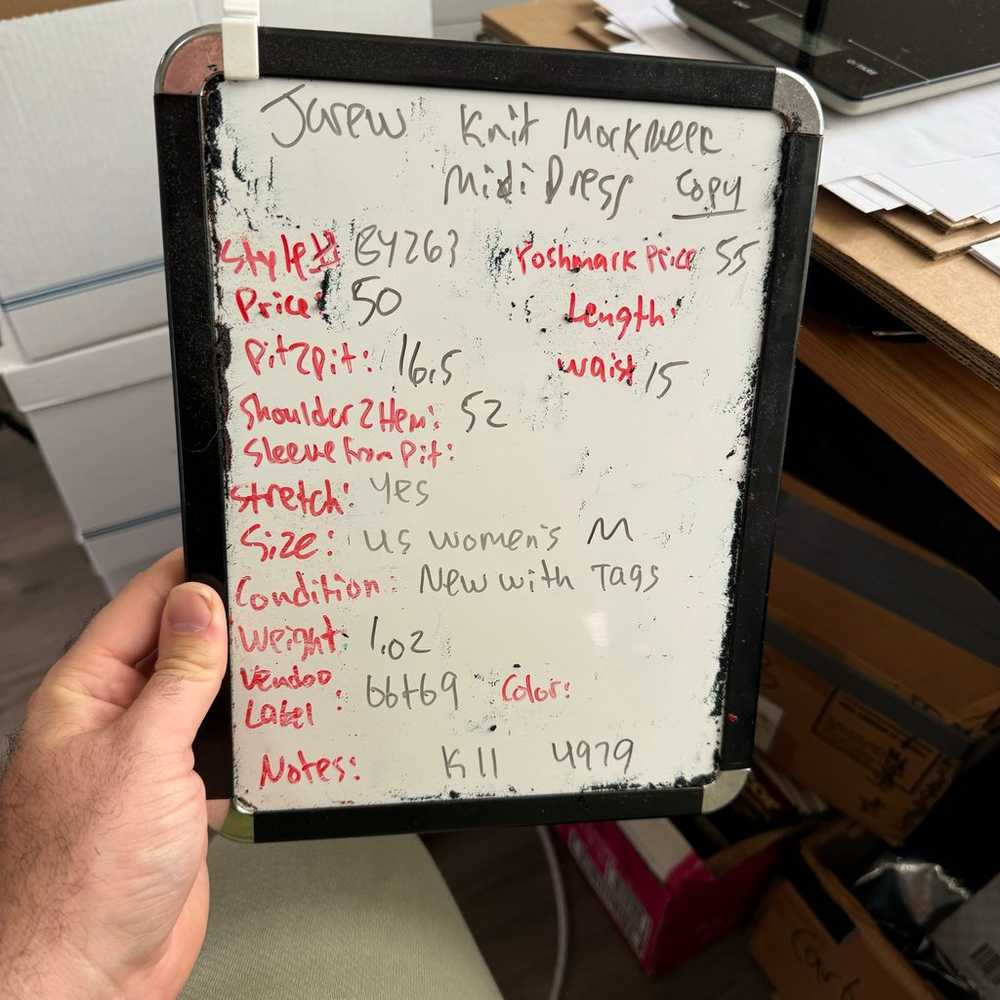 Jcrew Knit Mockneck
Midi Dress Copy
Style# BY263 Poshmark Price 55
Price: 50 Length:
Pit2pit: 16.5 waist 15
Shoulder2Hem: 52
Sleeve from pit:
Stretch: Yes
Size: US women's M
Condition: New with Tags
Weight: 1.02
Vendoo
Label: 66+69 Color:
Notes: K11 4979